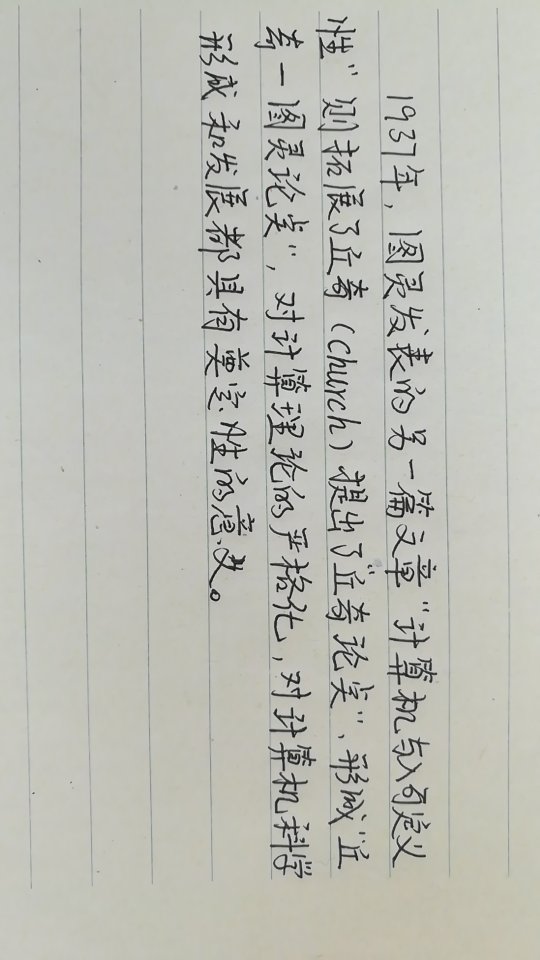 1937年，图灵发表的另一篇文章“计算机与λ可定义
性”则拓展了丘奇（church）提出了“丘奇论点”，形成“丘
奇一图灵论点”，对计算理论的严格化，对计算机科学
形成和发展都具有奠定性的意义。